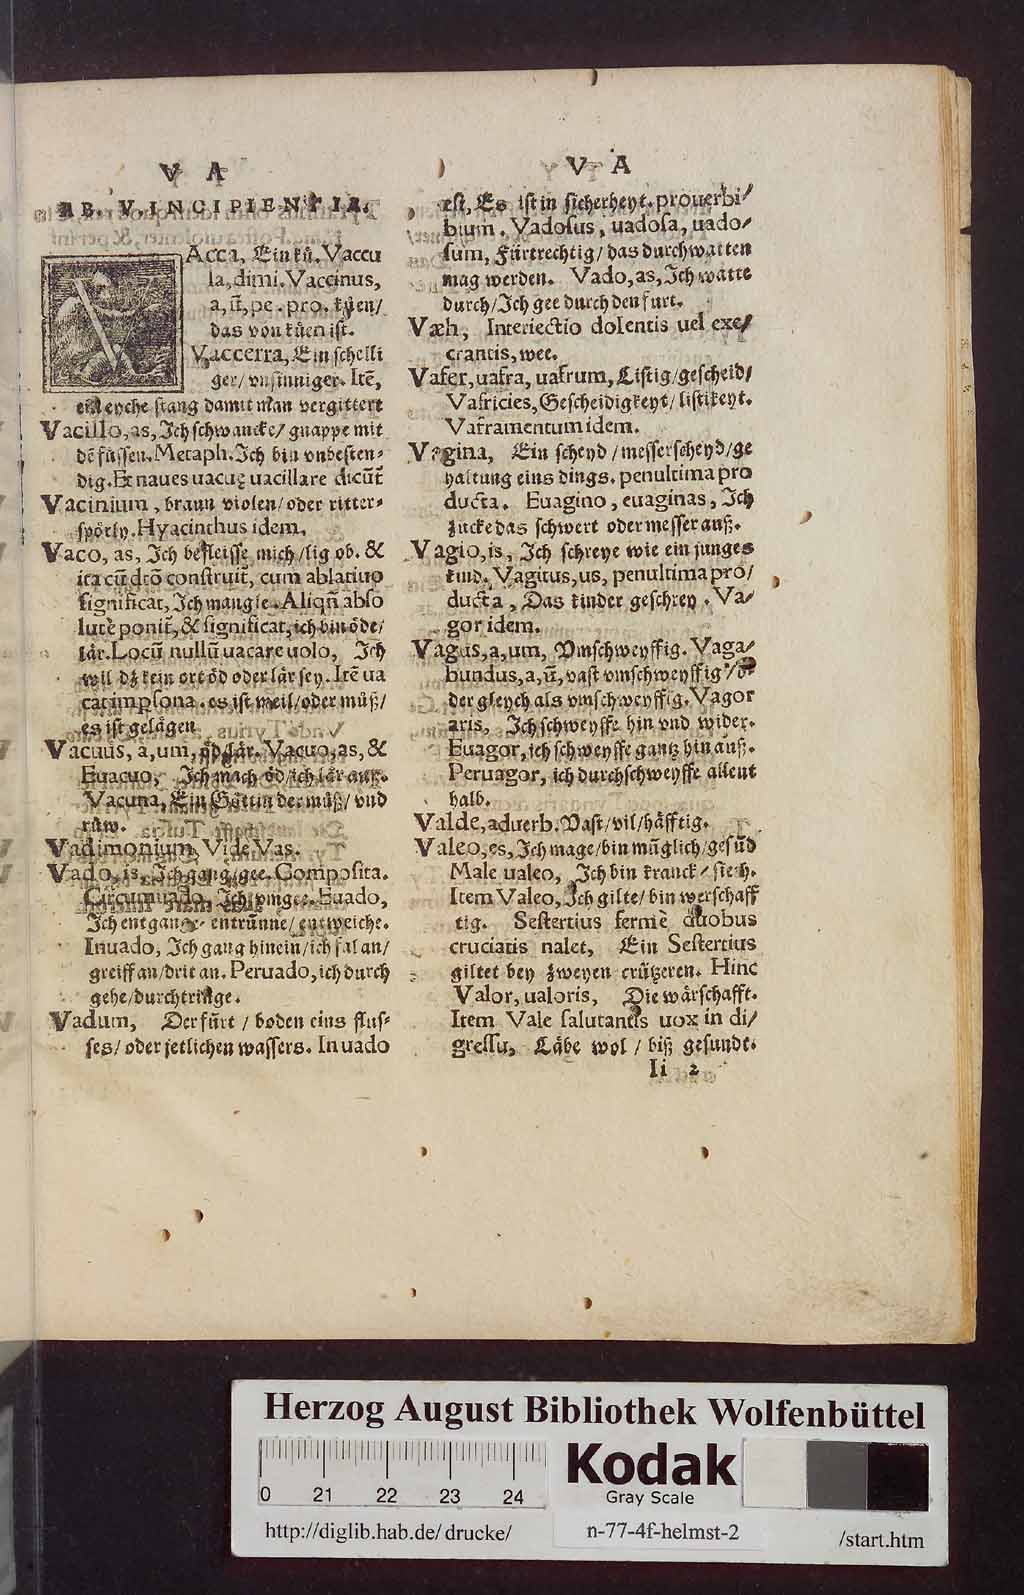 V A
AB. V. INCIPIENTIA.
Acca, Ein ků. Vaccu
la, dimi. Vaccinus,
a, ū, pe. pro. kyen/
das von kůen ist.
Vaccerra, Ein schelli
ger/ vnsinniger. Itē,
ein eyche stang damit man vergittert
Vacillo, as, Ich schwancke/ gnappe mit
dē füssen. Metaph. Ich bin vnbesten-
dig. Et naues uacuę uacillare dicūt
Vacinium, braun violen/ oder ritter-
spörly. Hyacinthus idem.
Vaco, as, Ich befleisse mich/ lig ob. &
ita cū dtō construit, cum ablatiuo
significat, Ich mangle. Aliqñ abso
lutè ponit, & significat, ich bin öde/
lär. Locū nullū uacare uolo, Ich
wil dz kein ort öd oder lär sey. Itē ua
cat impsona. es ist weil/ oder můß/
es ist gelägen
Vacuus, a, um, öd/ lär. Vacuo, as, &
Euacuo, Ich mach öd/ ich lär auß.
Vacuna, Ein Göttin der můß/ vnd
rům.
Vadimonium, Vide Vas.
Vado, is, Ich gang/ gee. Composita.
Circumuado, Ich vmgee. Euado,
Ich entgange/ entrünne/ entweiche.
Inuado, Ich gang hinein/ ich fal an/
greiff an/ drit an. Peruado, ich durch
gehe/ durchtringe.
Vadum, Der fůrt / boden eins flus-
ses/ oder jetlichen wassers. In uado
V A
est, Es ist in sicherheyt. prouerbi/
bium. Vadosus, uadosa, uado/
sum, Fürtrechtig/ das durchwatten
mag werden. Vado, as, Ich watte
durch/ Ich gee durch den furt.
Væh, Interiectio dolentis uel exe/
crantis, wee.
Vafer, uafra, uafrum, Listig/ gescheid/
Vafricies, Gescheidigkeyt/ listikeyt.
Vaframentum idem.
Vagina, Ein scheyd / messerscheyd/ ge
haltung eins dings. penultima pro
ducta. Euagino, euaginas, Ich
zucke das schwert oder messer auß.
Vagio, is, Ich schreye wie ein junges
kind. Vagitus, us, penultima pro/
ducta, Das kinder geschrey. Va-
gor idem.
Vagus, a, um, Vmschweyffig. Vaga/
bundus, a, ū, vast vmschweyffig/ o-
der gleych als vmschweyffig. Vagor
aris, Ich schweyffe hin vnd wider.
Euagor, ich schweyffe gantz hin auß.
Peruagor, ich durchschweyffe allent
halb.
Valde, aduerb. Vast/ vil/ häfftig.
Valeo, es, Ich mage/ bin müglich/ gesūd
Male ualeo, Ich bin kranck/ siech.
Item Valeo, Ich gilte/ bin werschaff
tig. Sestertius fermè duobus
cruciatis nalet, Ein Sestertius
giltet bey zweyen crützeren. Hinc
Valor, ualoris, Die wärschafft.
Item Vale salutantis uox in di/
gressu, Läbe wol / biß gesundt.
Ii 2
Herzog August Bibliothek Wolfenbüttel
0 21 22 23 24
Kodak
Gray Scale
http://diglib.hab.de/drucke/
n-77-4f-helmst-2
/start.htm